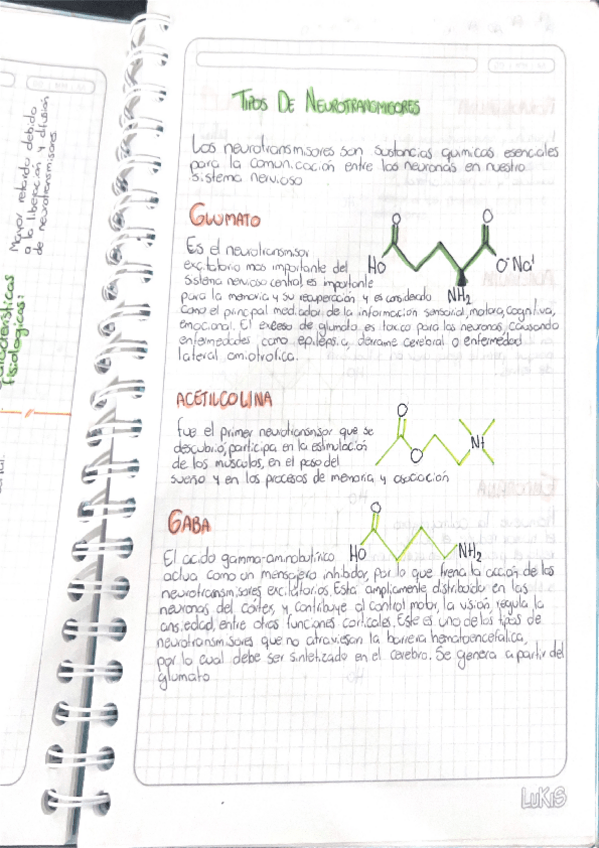 Mayor retardo debido
a la liberación y difusión
de neurotransmisores.
fisiologicas:
TIPOS DE NEUROTRANSMISORES
Los neurotransmisores son sustancias quimicas esenciales
para la comunicación entre las neuronas en nuestro
sistema nervioso
GLUMATO
Es el neurotransmisor
excitatorio mas importante del
sistema nervioso central, es importante
para la memoria y su recuperación y es considerado
como el principal mediador de la informacion sensorial, motora, cognitiva,
emocional. El exceso de glumato es toxico para las neuronas, causando
enfermedades como epilepsia, derrame cerebral o enfermedad
lateral amiotrofica.
O
O
HO
O⁻ Na⁺
NH₂
ACETILCOLINA
Fue el primer neurotransmisor que se
descubrió, participa en la estimulación
de los musculos, en el paso del
sueño y en los procesos de memoria y asociación
O
O
N+
GABA
O
HO
NH₂
El acido gamma-aminobutirico
actua como un mensajero inhibidor, por lo que frena la acción de los
neurotransmisores excitatorios. Esta ampliamente distribuido en las
neuronas del cortex y contribuye al control motor, la vision, regula la
ansiedad, entre otras funciones corticales. Este es uno de los tipos de
neurotransmisores que no atraviesan la barrera hematoencefalica,
por lo cual debe ser sintetizado en el cerebro. Se genera a partir del
glumato
LUKIS